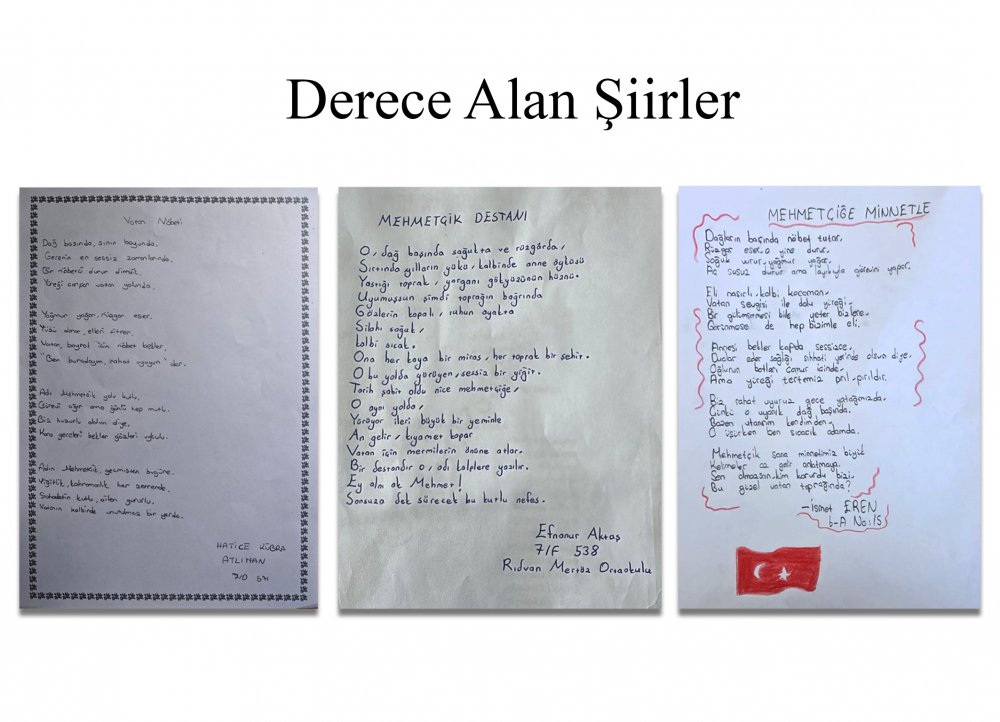 Derece Alan Şiirler
Vatan Nöbeti
Dağ başında, sınır boyunda,
Gecenin en sessiz zamanlarında,
Bir nöbetçi durur dimdik,
Yüreği çarpar vatan yolunda.
Yağmur yağar, rüzgar eser,
Yüzü donar, elleri titrer,
Vatan, bayrak için nöbet bekler,
"Ben buradayım, rahat uyuyun" der.
Adı Mehmetçik yolu kutlu,
Görevi ağır ama gönlü hep mutlu.
Biz huzurlu olalım diye,
Kara geceleri bekler gözleri uykulu.
Adın Mehmetcik, geçmişten bugüne.
Yiğitlik, kahramanlık her zerrende.
Şehadetin kutlu, ailen gururlu,
Vatanın kalbinde unutulmaz bir yerde.
HATİCE KÜBRA
ATLIHAN
7/D 571
MEHMETÇİK DESTANI
O, dağ başında soğukta ve rüzgarda,
Sırtında yılların yükü, kalbinde anne öyküsü
Yastığı toprak, yorganı gökyüzünün hüznü.
Uyumuşsun şimdi toprağın bağrında
Gözlerin kapalı, ruhun ayakta
Silahı soğuk,
kalbi sıcak.
Ona her kaya bir miras, her toprak bir şehir.
O bu yolda yürüyen, sessiz bir yiğit.
Tarih şahit oldu nice mehmetçiğe,
O aynı yolda,
Yürüyor ileri büyük bir yeminle
An gelir, kıyamet kopar
Vatan için mermilerin önüne atlar.
Bir destandır o, adı kalplere yazılır.
Ey alnı ak Mehmet!
Sonsuza dek sürecek bu kutlu nefes.
Efnanur Aktaş
7/F 538
Rıdvan Mertöz Ortaokulu
MEHMETÇİĞE MİNNETLE
Dağların başında nöbet tutar,
Rüzgar eser, o yine durur,
Soğuk vurur, yağmur yağar,
Aç susuz durur ama layıkıyla görevini yapar.
Eli nasırlı, kalbi kocaman,
Vatan sevgisi ile dolu yüreği,
Bir gülümsemesi bile yeter bizlere,
Görünmese de hep bizimle eli.
Annesi bekler kapıda sessizce,
Dualar eder sağlığı sıhhati yerinde olsun diye,
Oğlunun botları çamur içinde,
Ama yüreği tertemiz pırıl pırıldır.
Biz rahat uyuruz gece yatağımızda,
Çünkü o uyanık dağ başında.
Bazen utanırım kendimden,
O üşürken ben sıcacık odamda.
Mehmetçik sana minnetimiz büyük
Kelimeler az gelir anlatmaya.
Sen olmazsan, kim korurdu bizi,
Bu güzel vatan toprağında?
-İsmet EREN
6-A No:15